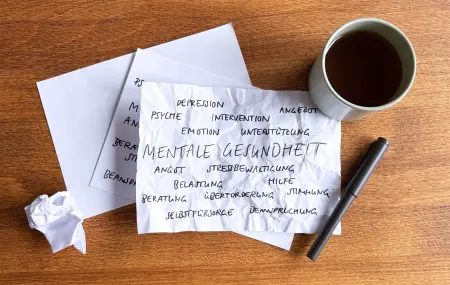 DEPRESSION
PSYCHE INTERVENTION ANGEBOT
EMOTION UNTERSTÜTZUNG
MENTALE GESUNDHEIT
ANGST STRESSBEWÄLTIGUNG
BELASTUNG HILFE
BERATUNG ÜBERFORDERUNG STIMMUNG
SELBSTFÜRSORGE BEANSPRUCHUNG
PS
M
AN
BERA
BEANSP